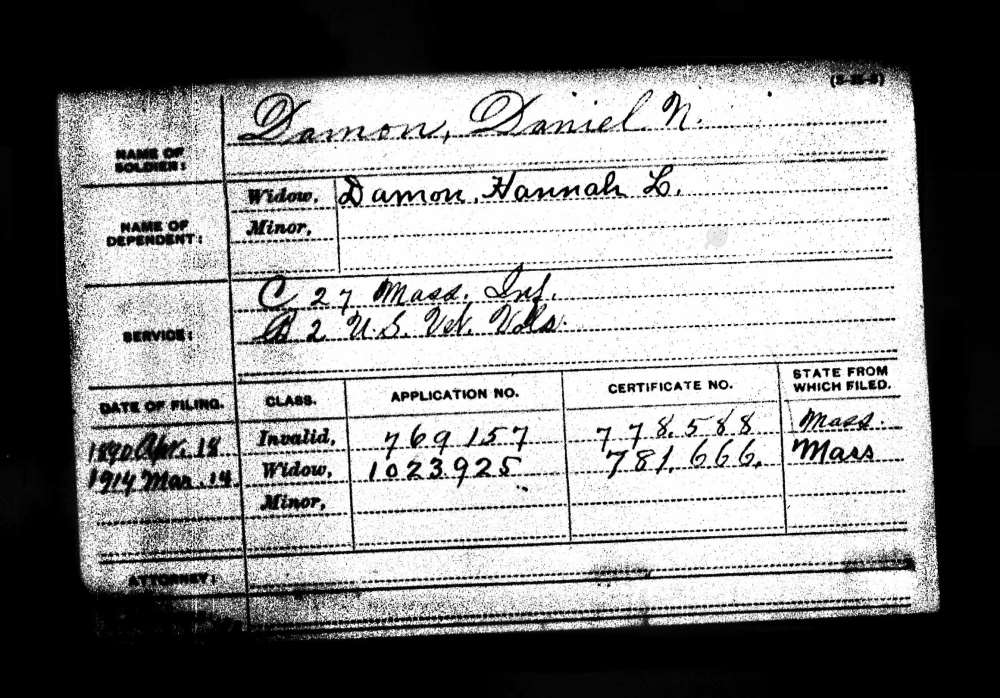 (3-
Damon, Daniel N.
NAME OF
SOLDIER:
Widow, Damon, Hannah L.
NAME OF
DEPENDENT:
Minor,
C 27 Mass. Inf.
SERVICE:
2 U.S. Vet. Vols.
DATE OF FILING. CLASS. APPLICATION NO. CERTIFICATE NO. STATE FROM WHICH FILED.
1890 Apr. 18 Invalid, 769157 778.588 Mass.
1914 Mar. 14 Widow, 1023925 781.666. Mass
Minor,
ATTORNEY: